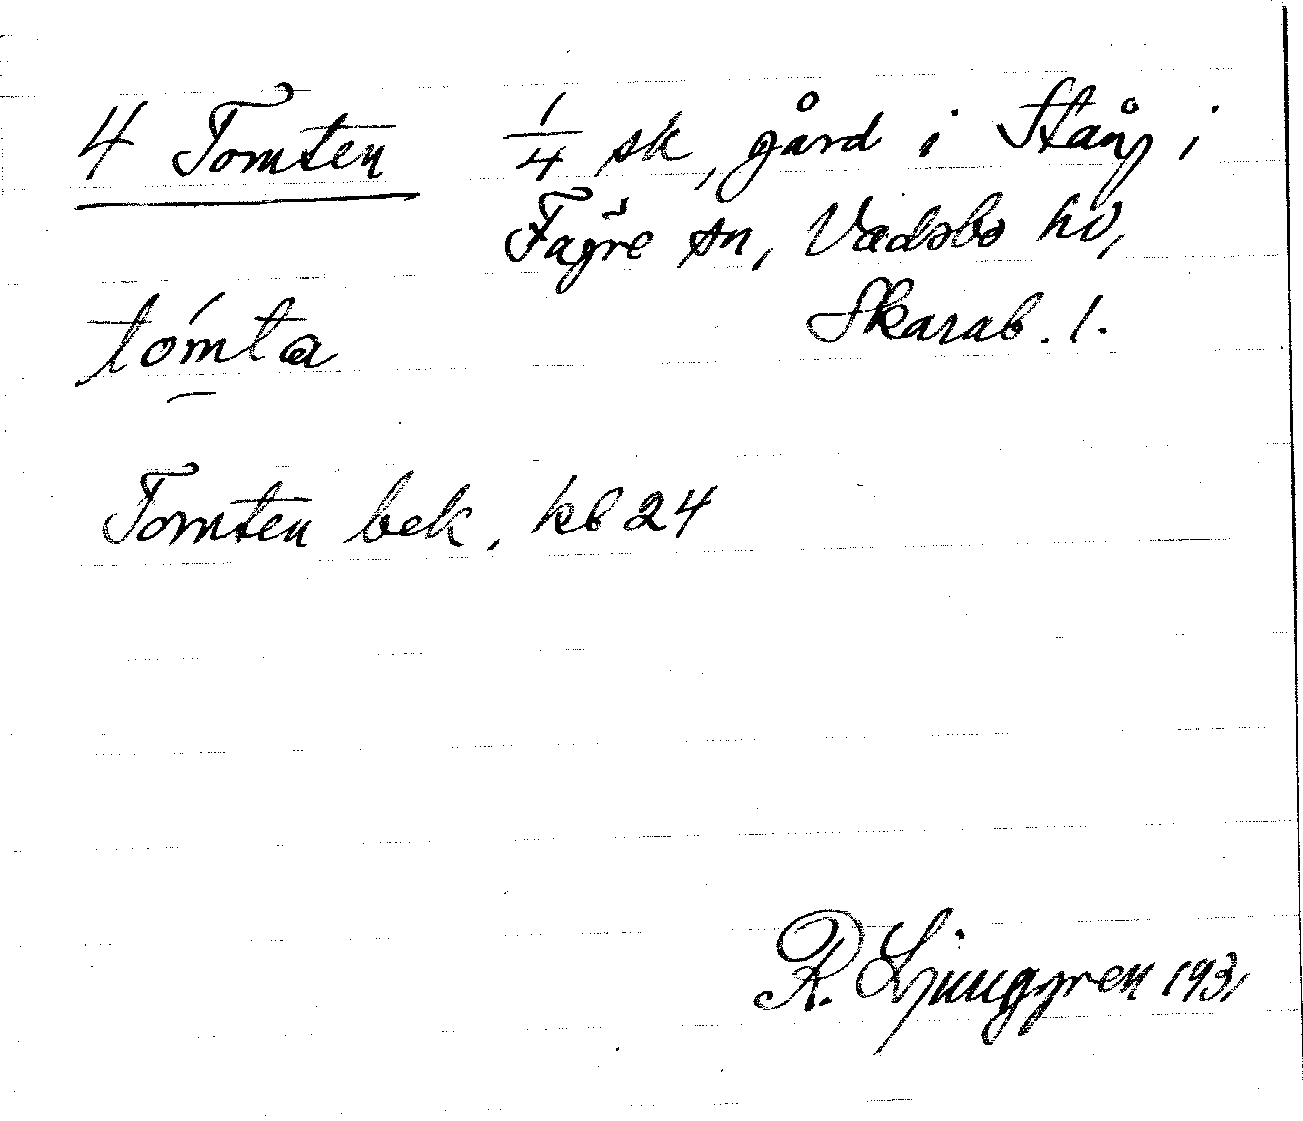 4 Tomten 1/4 sk, gård i Stång i
Fägre sn, Vadsbo hd,
tómta Skarab. l.
Tomten bek. kb 24
R. Ljunggren 1931